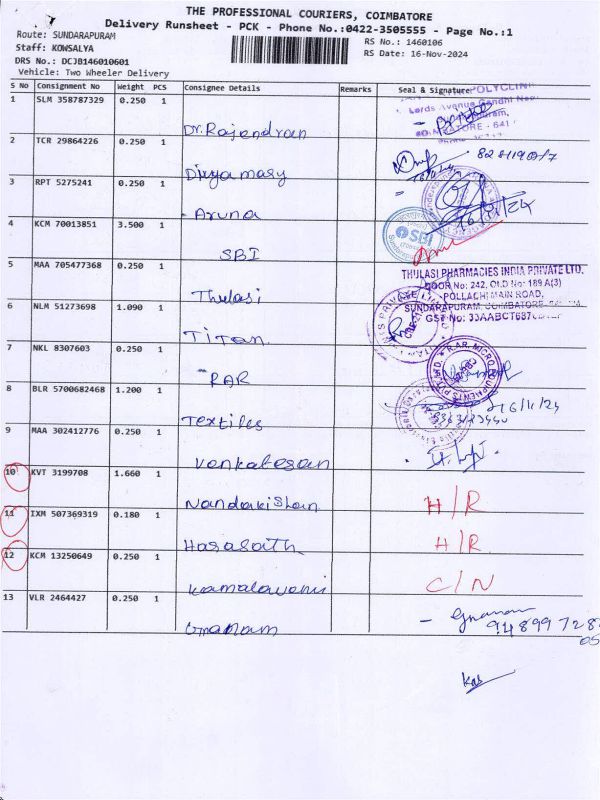 THE PROFESSIONAL COURIERS, COIMBATORE
Delivery Runsheet - PCK - Phone No.:0422-3505555 - Page No.:1
Route: SUNDARAPURAM
RS No.: 1460106
Staff: KOWSALYA
RS Date: 16-Nov-2024
DRS No.: DCJB146010601
Vehicle: Two Wheeler Delivery
S No Consignment No Weight PCS Consignee Details Remarks Seal & Signature
1 SLM 358787329 0.250 1
Dr. Rajendran
2 TCR 29864226 0.250 1
Divya mary
3 RPT 5275241 0.250 1
Aruna
16/11/24
4 KCM 70013851 3.500 1
SBI
SBI
5 MAA 705477368 0.250 1
Thulasi
THULASI PHARMACIES INDIA PRIVATE LTD.
DOOR No: 242, OLD No: 189 A(3)
POLLACHI MAIN ROAD,
SUNDARAPURAM, COIMBATORE
6 NLM 51273698 1.090 1
Titan
7 NKL 8307603 0.250 1
RAR
8 BLR 5700682468 1.200 1
Textiles
9 MAA 302412776 0.250 1
Venkatesan
10 KVT 3199708 1.660 1
Nandakishan
H/R
11 IXM 507369319 0.180 1
Harasath
H/R
12 KCM 13250649 0.250 1
Kamalaveni
C/N
13 VLR 2464427 0.250 1
Gnanam
Gnanam